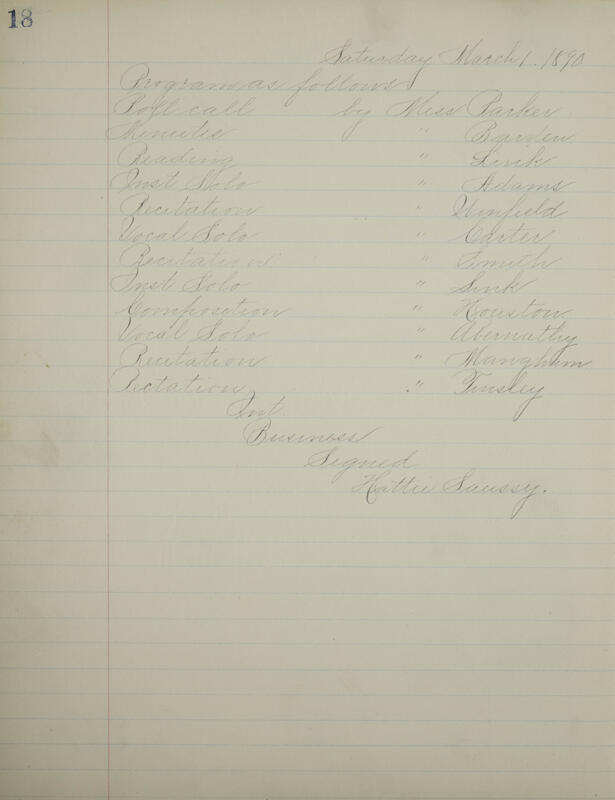 18
Saturday March 1. 1890
Program as follows
Roll call by Miss Parker
Minutes " Barden
Reading " Sink
Inst Solo " Adams
Recitation " Winfield
Vocal Solo " Carter
Recitation " Smith
Inst Solo " Sink
Composition " Houston
Vocal Solo " Abernathy
Recitation " Manghum
Rectation " Tinsley
Int.
Business
Signed
Hattie Saussy.